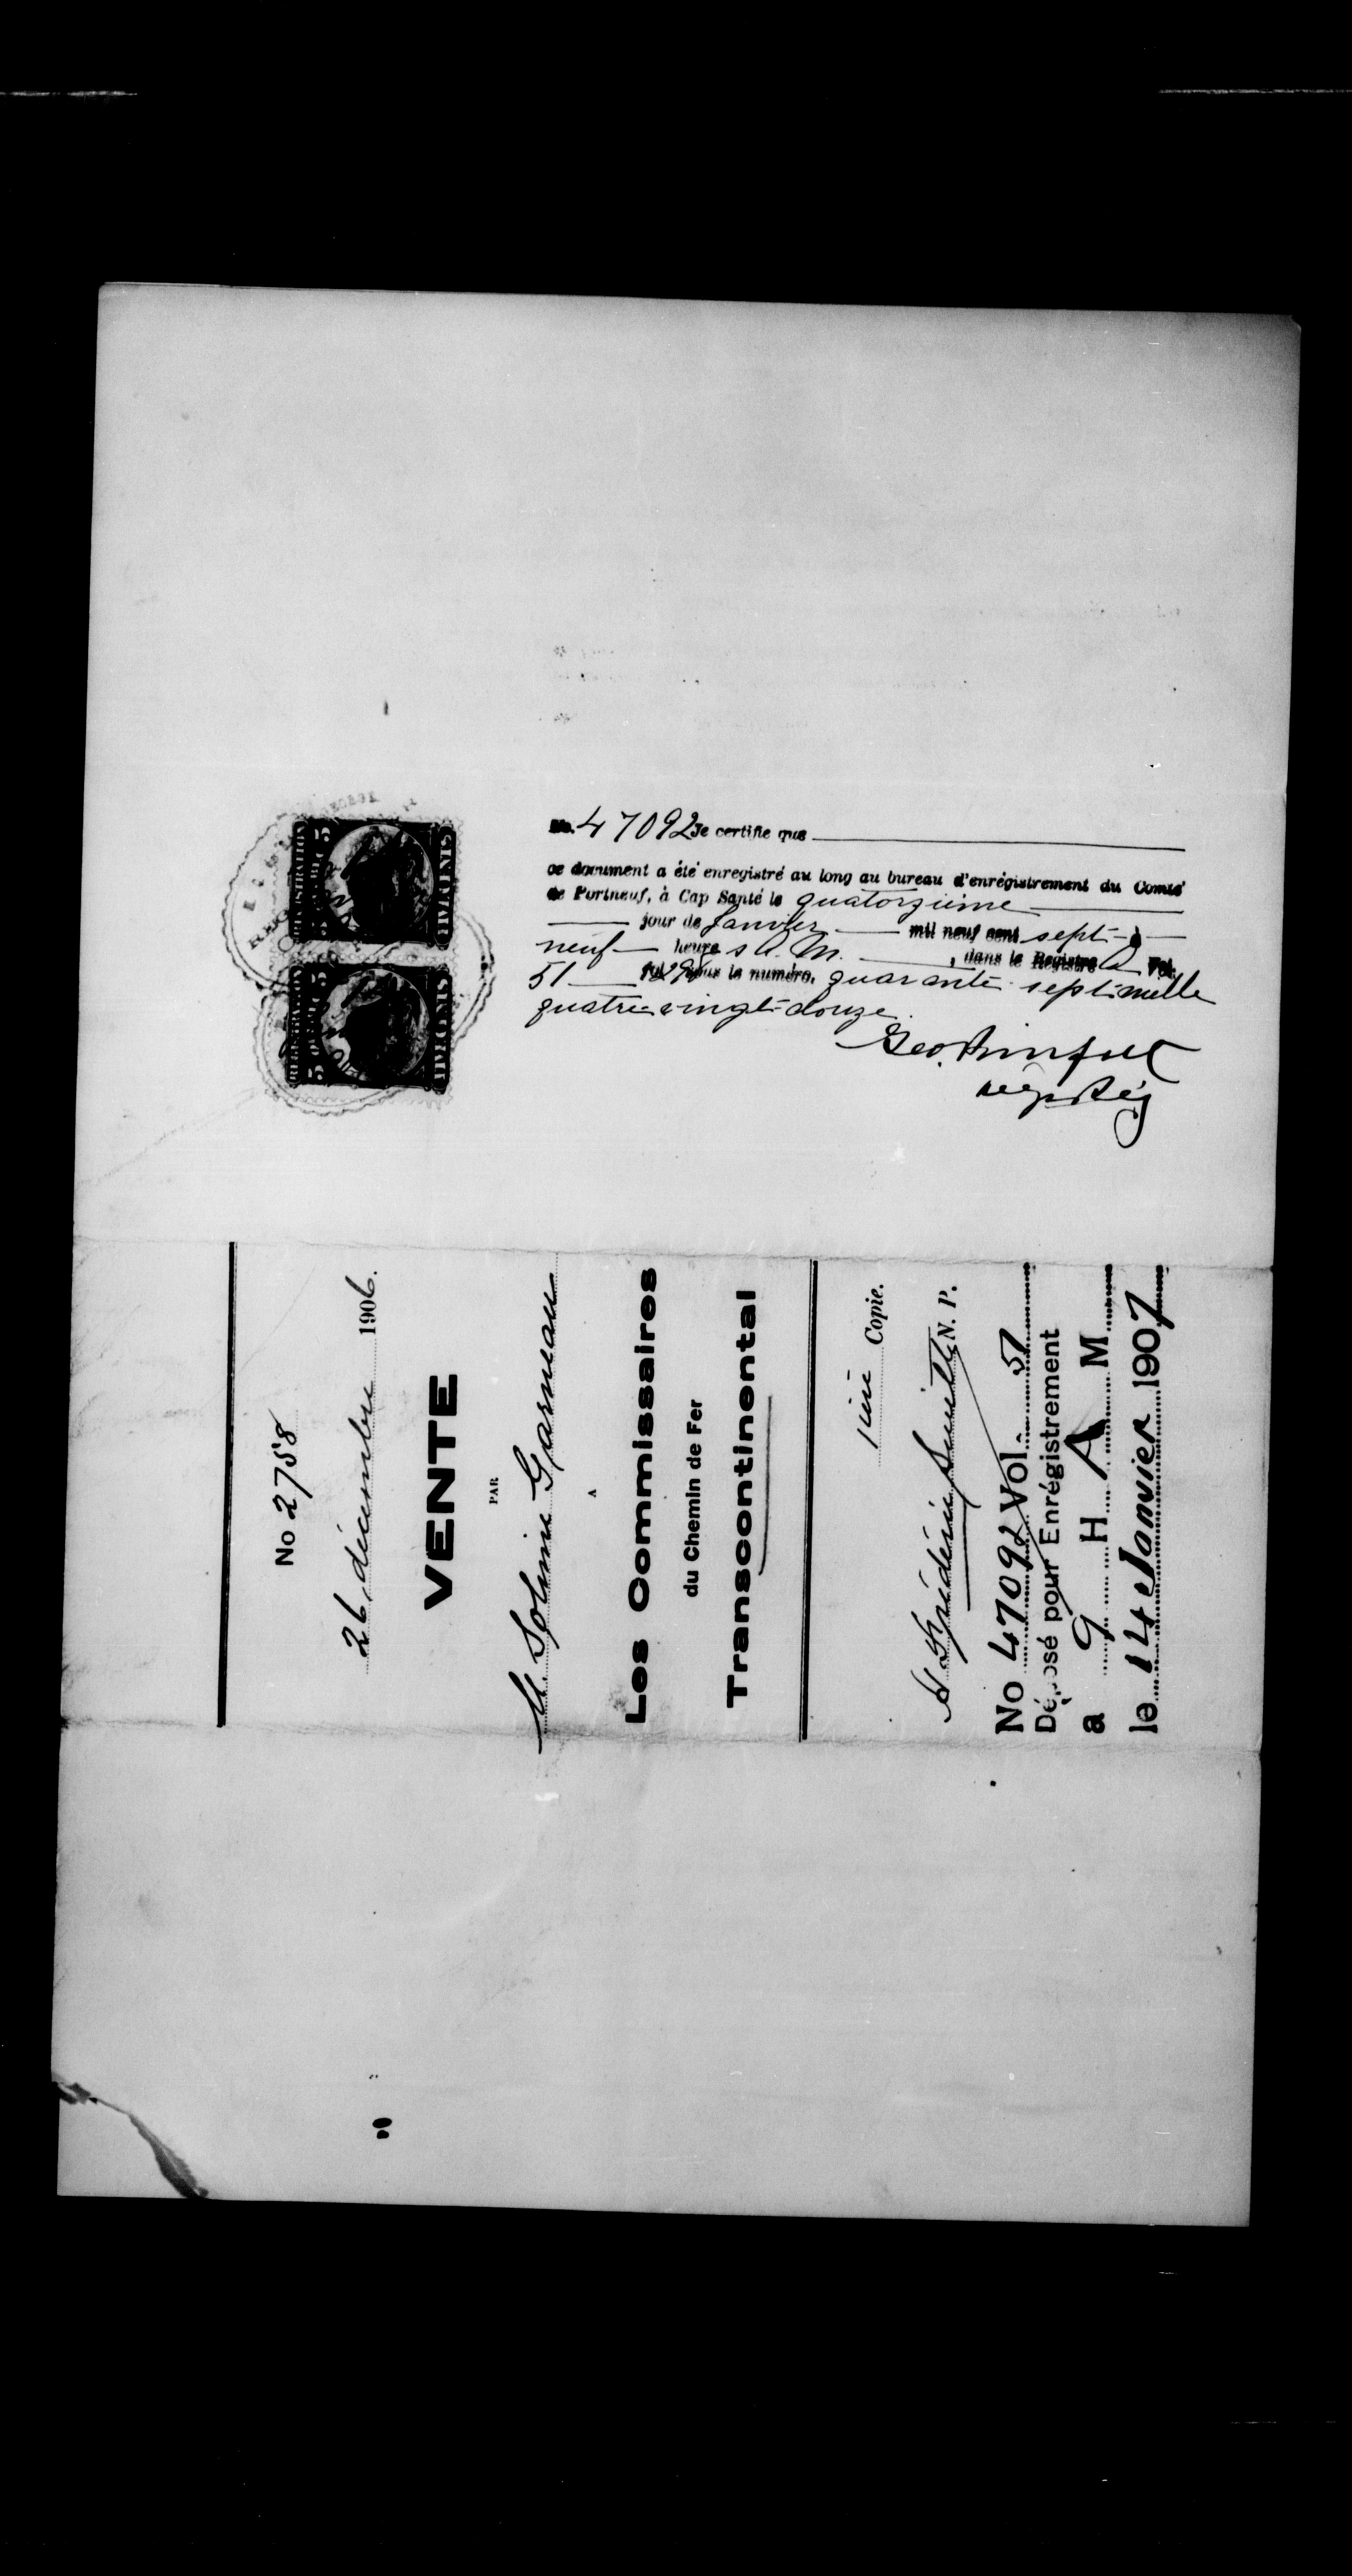 No. 47092 Je certifie que
ce document a été enregistré au long au bureau d'enrégistrement du Comté
de Portneuf, à Cap Santé le quatorzième
jour de Janvier mil neuf cent sept à
neuf heures A. M. , dans le Registre Vol.
51 sous le numéro, quarante-sept mille
quatre-vingt-douze.
Geo.
Dép Rég
No 2758
26 décembre 1906.
VENTE
PAR
M. Solime Garneau
A
Les Commissaires
du Chemin de Fer
Transcontinental
1ière Copie.
N. P.
No 47092 Vol. 51
Déposé pour Enrégistrement
a 9 H A M
le 14 Janvier 1907
REGISTRATION
FIVE CENTS
REGISTRATION
FIVE CENTS